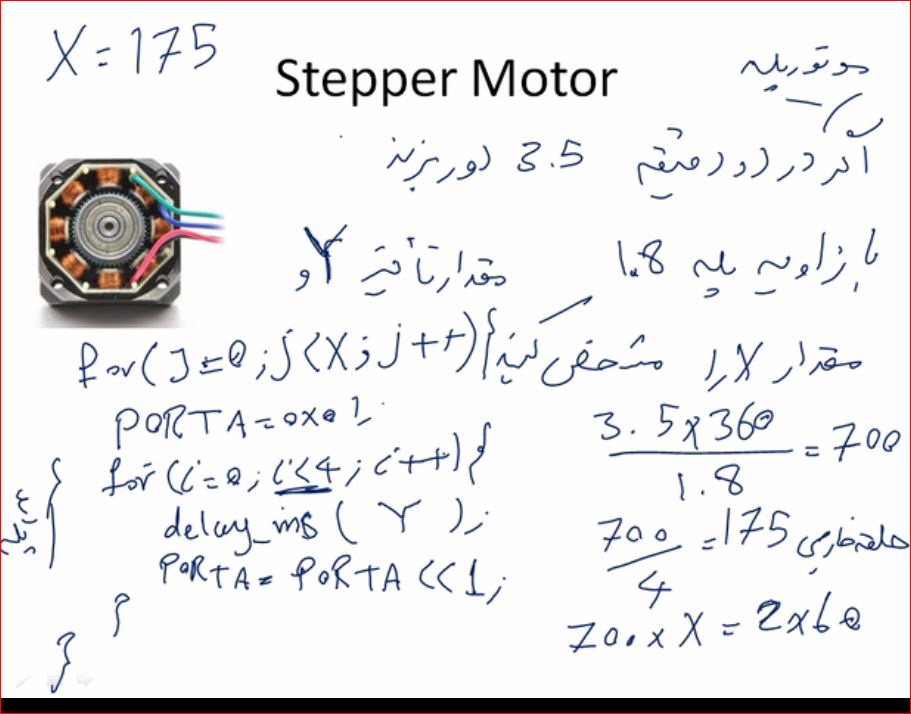 X = 175
Stepper Motor
موتور پله
اگر در دو دقیقه 3.5 دور بزند
با زاویه پله 1.8 مقدار تأخیر Y و
مقدار X را مشخص کنید
for(J=0;j<X;j++){
PORTA=0x01
for(i=0;i<4;i++){
delay_ms(Y);
PORTA=PORTA<<1;
}
}
4
پله
3.5x360 / 1.8 = 700
700 / 4 = 175 حلقه خارجی
700xX=2x60